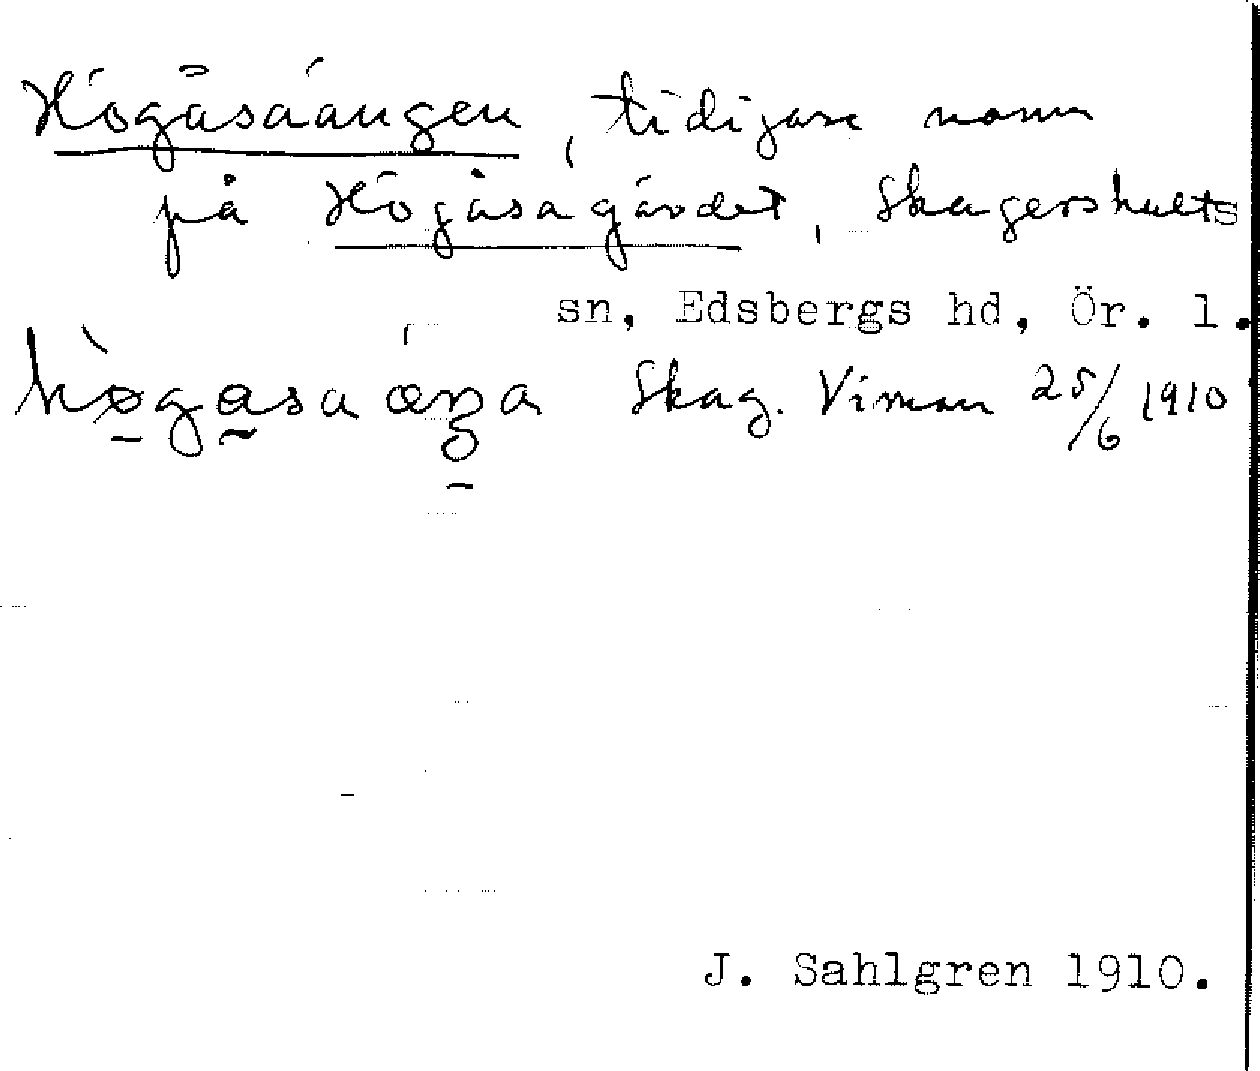 Högåsaängen, tidigare namn
på Högåsagärdet, Skagershults
sn, Edsbergs hd, Ör. l.
Skag. Viman 25/6 1910
J. Sahlgren 1910.